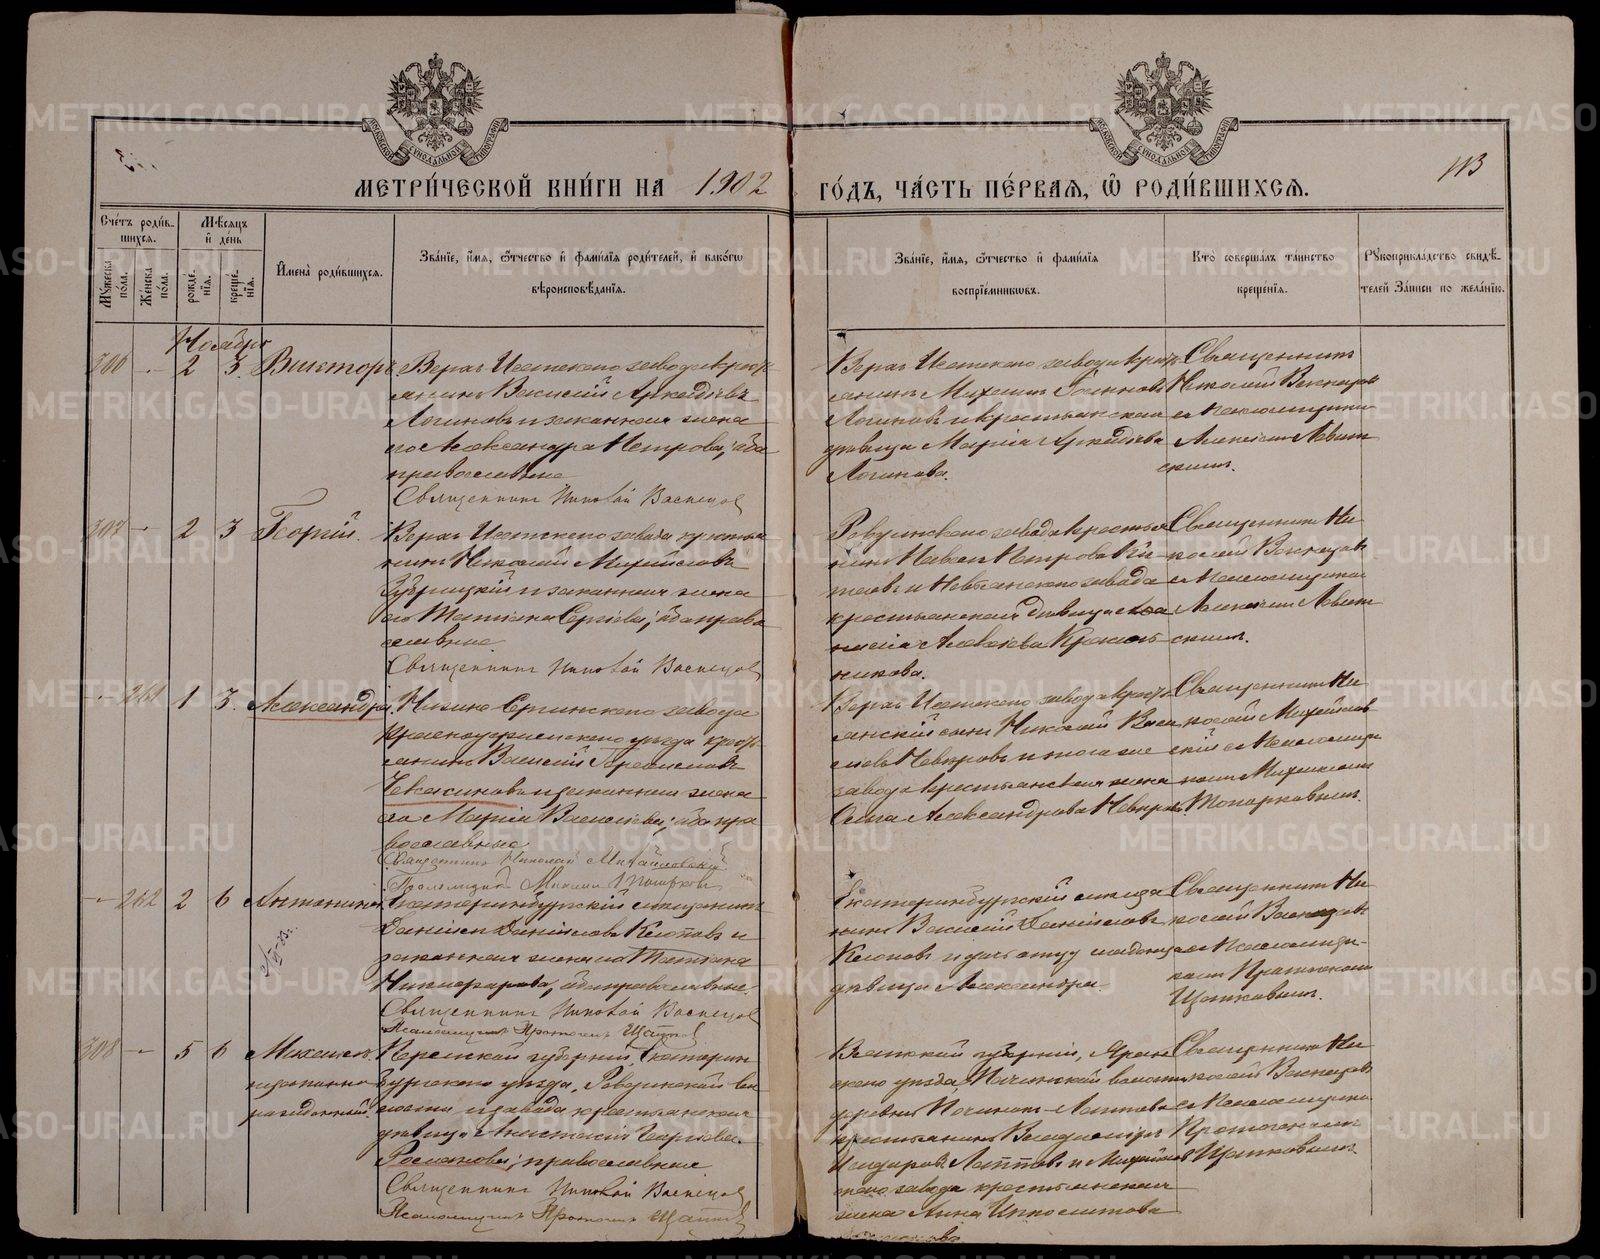 МЕТРИ́ЧЕСКОЙ КНИ́ГИ НА 1902
ГО́ДЪ, ЧА́СТЬ ПЕ́РВАѦ, Ѽ РОДИ́ВШИХСѦ.
113
Сче́тъ роди́в-
шихсѧ.
Мѣ́сѧцъ
и҆ де́нь
Мꙋ́жеска
по́ла.
Же́нска
по́ла.
рожде́-
нїѧ.
креще́-
нїѧ.
И҆мена̀ роди́вшихсѧ.
Зва́нїе, и҆́мѧ, ѻ҆́тчество и҆ фами́лїѧ роди́телей, и҆ како́гѡ
вѣроисповѣ́данїѧ.
Зва́нїе, и҆́мѧ, ѻ҆́тчество и҆ фами́лїѧ
воспрїе́мникѡвъ.
Кто̀ соверша́лъ та́инство
креще́нїѧ.
Рꙋкоприкла́дство свидѣ́-
телей за́писи по жела́нїю.
Ноябрь
306 - 2 3 Викторъ
Верхъ Исетскаго завода крест
янинъ Василій Аркадіевъ
Логиновъ и законная жена
его Александра Петрова, оба
православные
Священникъ Николай Васнецов
Верхъ Исетскаго завода крест
янинъ Михаилъ
Логиновъ и крестьянская
дѣвица Марія Аркадіева
Логинова.
Священникъ
Николай Васнецовъ
съ псаломщикомъ
Алексіемъ Левит
скимъ.
307 - 2 3 Георгій.
Верхъ Исетскаго завода крестья
нинъ Николай Михайловъ
Зубрицкій и законная жена
его Татіана Сергіева, оба право
славные.
Священникъ Николай Васнецов
Ревдинскаго завода крестья
нинъ Павелъ Петровъ Ки-
таевъ и Невьянскаго завода
крестьянская дѣвица
Алексіева
никова.
Священникъ Ни
колай Васнецовъ
съ псаломщикомъ
Алексіемъ Левит
скимъ.
- 261 1 3. Александра.
Нижне Сергинскаго завода
Красноуфимскаго уѣзда крест
янинъ Василій
и законная жена
его Марія Василіева, оба пра
вославные
Священникъ Николай Михайловскій
Псаломщикъ Михаил Топорков
Верхъ Исетскаго завода крест
янскій сынъ Николай Васи
ліевъ Невѣровъ и того же
завода крестьянская жена
Ольга Александрова Невѣрова.
Священникъ Ни
колай Михайлов
скій съ псаломщи
комъ Михаиломъ
Топорковымъ.
- 262 2 6 Антонина.
Екатеринбургскій мѣщанинъ
Даніилъ Даніиловъ Клоповъ и
законная жена его Татіана
Никифорова, оба православные.
Священникъ Николай Васнецов
Псаломщикъ Протогенъ
Екатеринбургскій мѣща
нинъ Василій Даніиловъ
Клоповъ и дочь отцу
дѣвица Александра.
Священникъ Ни
колай Васнецовъ
съ псаломщи-
комъ Протогеномъ
308 - 5 6 Михаилъ
незаконно
рожденный.
Пермской губерніи, Екатерин
бургскаго уѣзда, Ревдинской во
лости и завода крестьянская
дѣвица Анастасія Георгіева
православные
Священникъ Николай Васнецов
Псаломщикъ Протогенъ
Вятской губерніи, Яран
скаго уѣзда, волости
деревни Починокъ-Лаптева
крестьянинъ Владиміръ
Исидоровъ Лаптевъ и Михайлов
скаго завода крестьянская
жена Анна Ипполитова
Священникъ Ни
колай Васнецовъ
съ псаломщикомъ
Протогеномъ